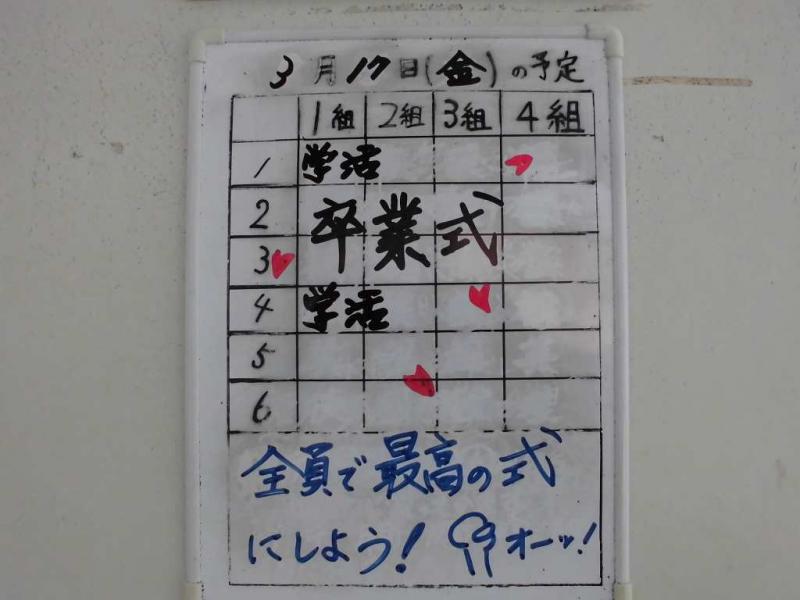 3月17日(金)の予定
1組 2組 3組 4組
1 学活
2 卒業式
3
4 学活
5
6
全員で最高の式
にしよう! オーッ!